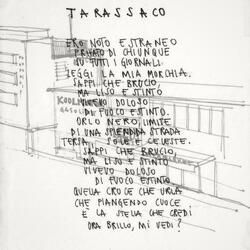 TARASSACO
ERO NOTO E STRANEO
PRIVATO DI CHIUNQUE
SU TUTTI I GIORNALI.
LEGGI LA MIA
SAPPI CHE BRUCIO,
MA LISO E STINTO
VIVEVO DOLOSO
DI FUOCO ESTINTO.
ORLO NERO, LIMITE
DI UNA SPLENDIDA STRADA
TERSA, SOLE E CELESTE.
SAPPI CHE BRUCIO
MA LISO E STINTO
VIVEVO DOLOSO
DI FUOCO ESTINTO
QUELLA CROCE CHE URLA
CHE PIANGENDO CUOCE
E LA STELLA CHE CREDI
ORA BRILLO, MI VEDI?